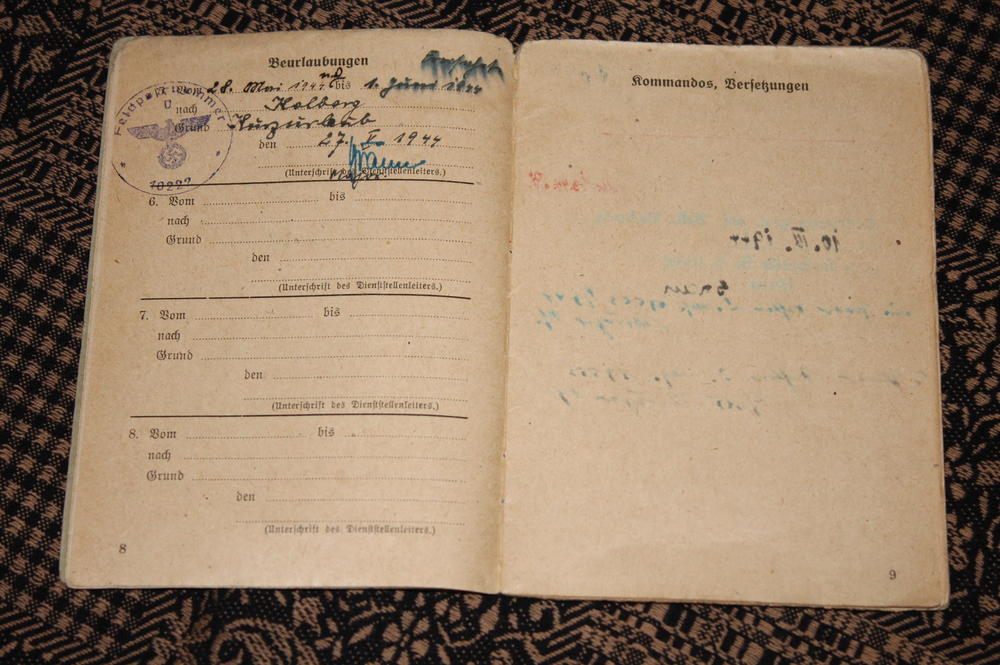 Beurlaubungen
Vom 28. Mai 1944 bis 1. Juni 1944
nach Kolberg
Grund Kurzurlaub
den 27. V. 1944
(Unterschrift des Dienststellenleiters.)
Feldpostnummer
10227
6. Vom bis
nach
Grund
den
(Unterschrift des Dienststellenleiters.)
7. Vom bis
nach
Grund
den
(Unterschrift des Dienststellenleiters.)
8. Vom bis
nach
Grund
den
(Unterschrift des Dienststellenleiters.)
8
Kommandos, Versetzungen
9